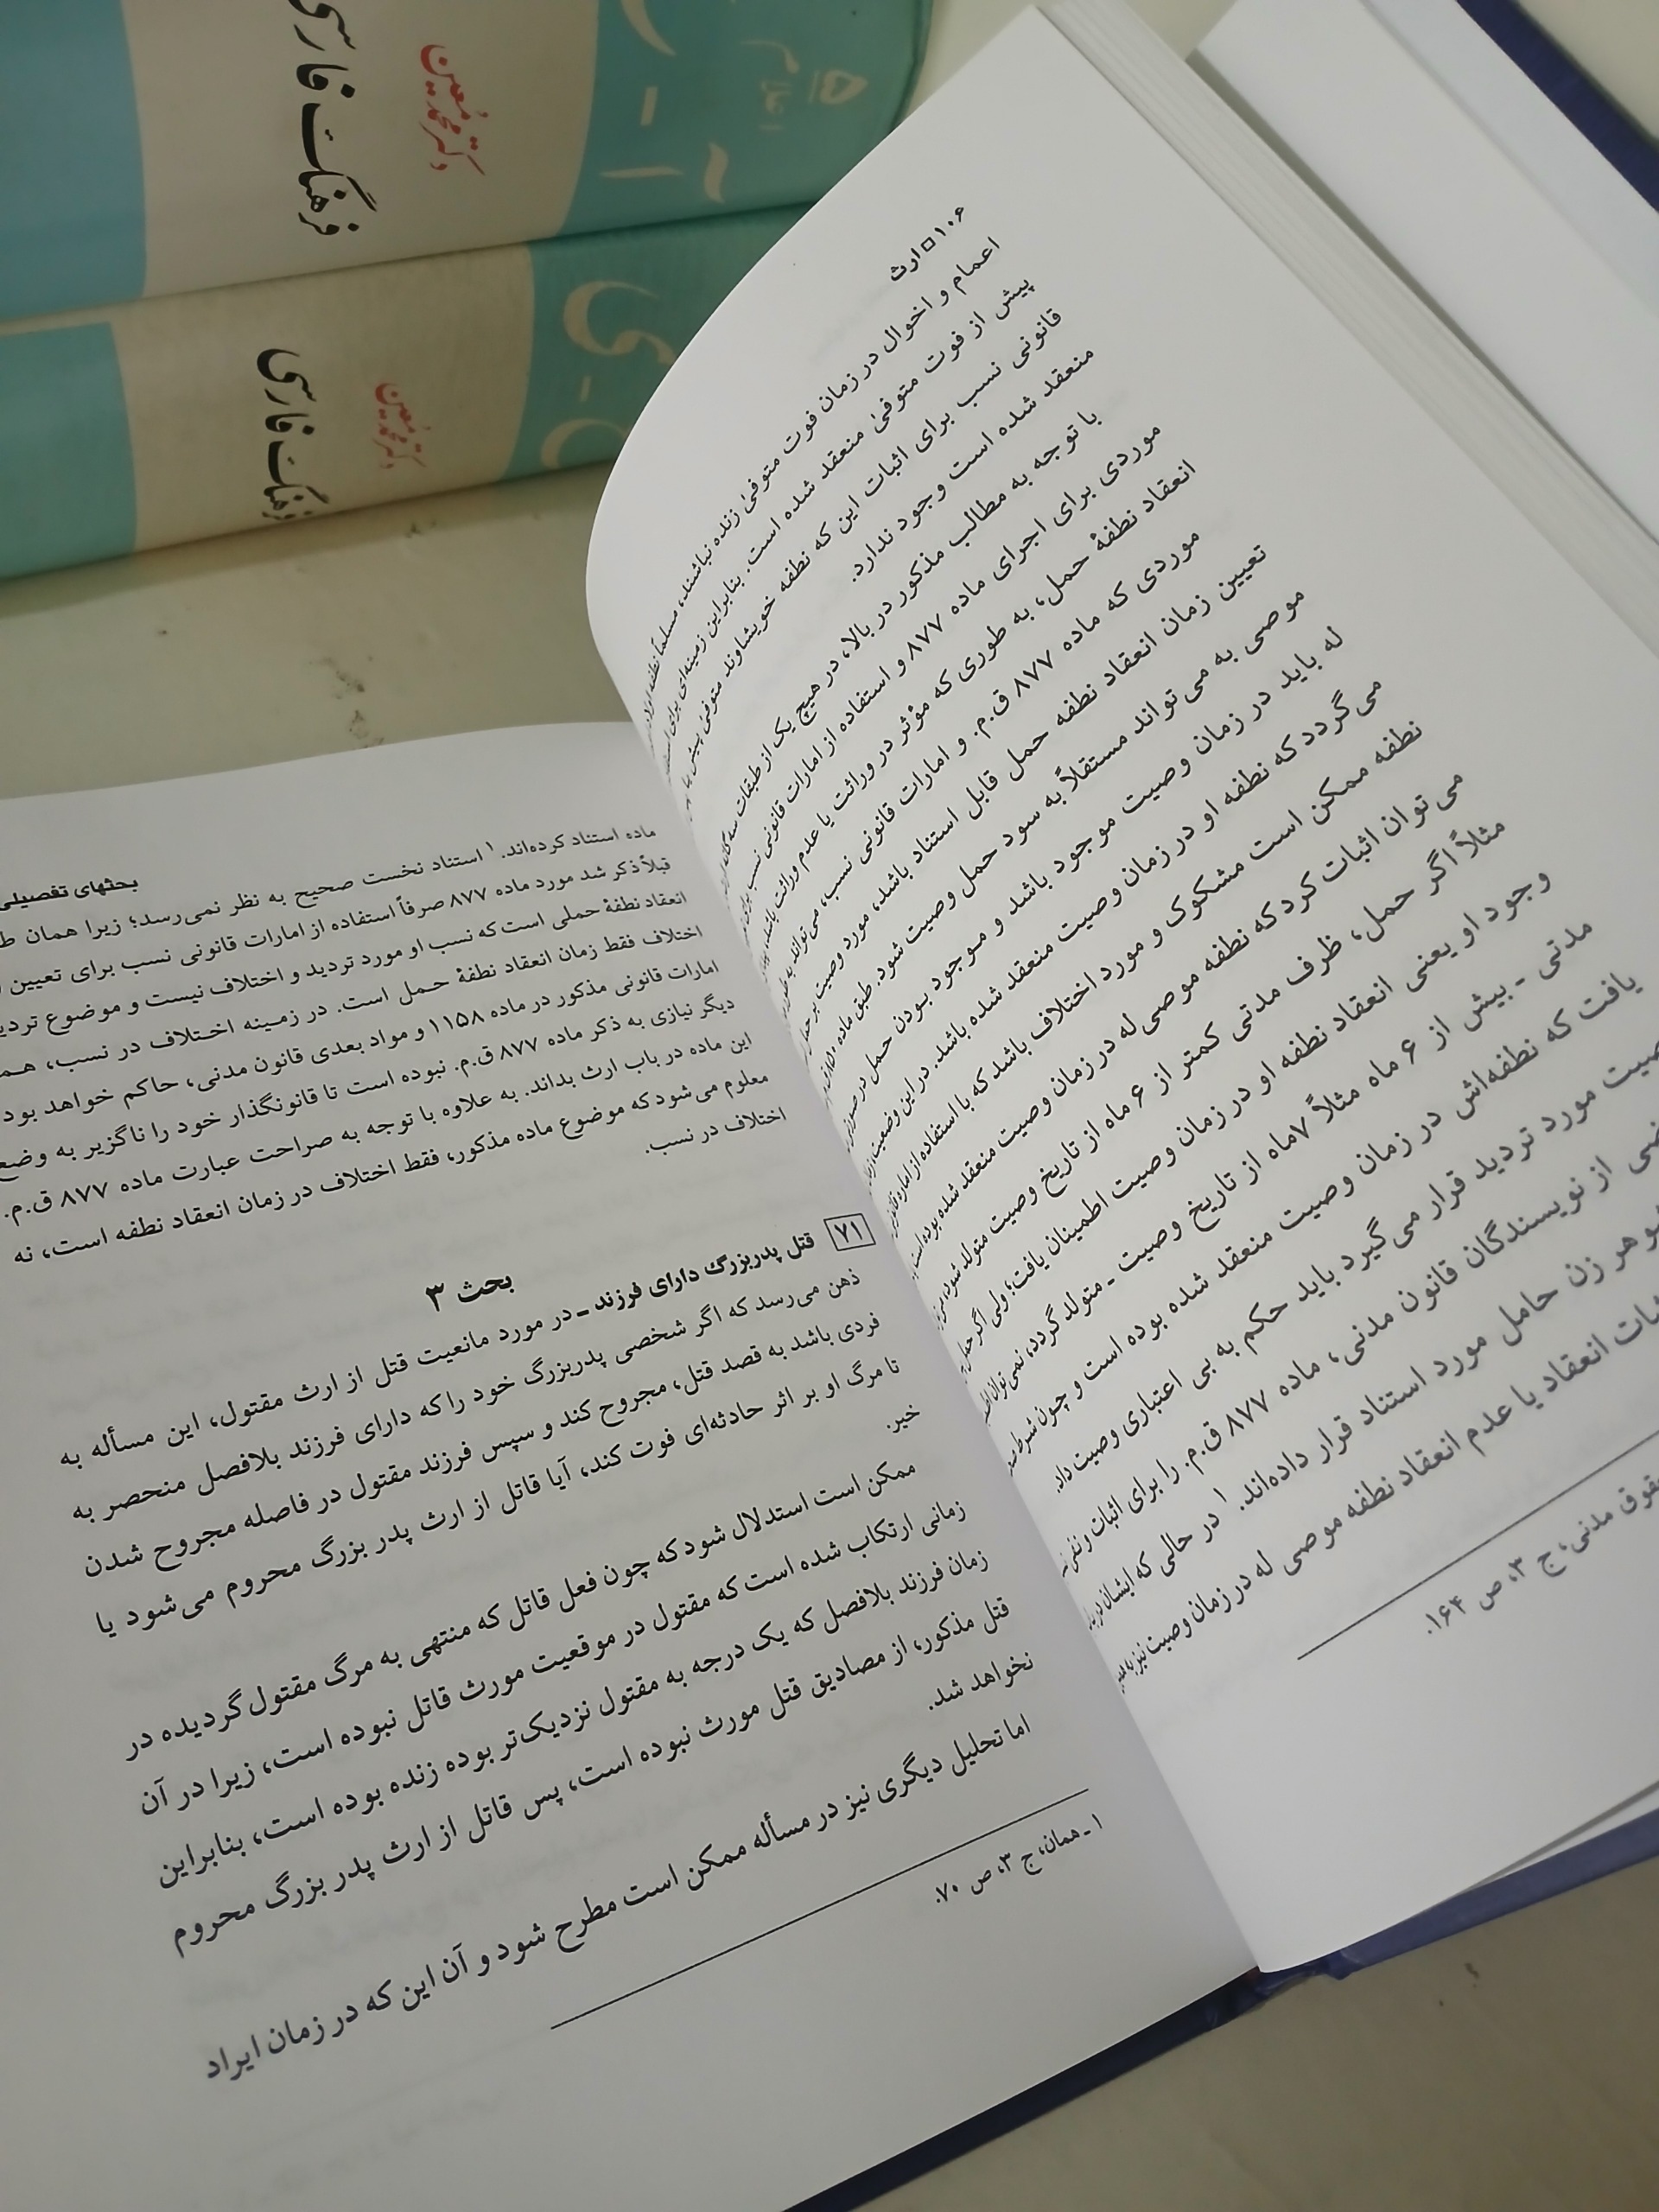 فرهنگ فارسی
دکتر محمد معین
آ - خ
فرهنگ فارسی
دکتر محمد معین
ی
۱۰۶ □ ارث
اعمام و اخوال در زمان فوت متوفیٰ زنده نباشند، مسلماً نطفه
پیش از فوت متوفیٰ منعقد شده است. بنابراین زمینه‌ای برای
قانونی نسب برای اثبات این که نطفه خویشاوند متوفیٰ پیش
منعقد شده است وجود ندارد.
با توجه به مطالب مذکور در بالا، در هیچ یک از طبقات سه گانه
موردی برای اجرای ماده ۸۷۷ و استفاده از امارات قانونی نسب
انعقاد نطفهٔ حمل، به طوری که مؤثر در وراثت یا عدم وراثت باشد،
موردی که ماده ۸۷۷ ق.م. و امارات قانونی نسب، می‌تواند
تعیین زمان انعقاد نطفه حمل قابل استناد باشد، مورد وصیت بر حمل
موصی به می‌تواند مستقلاً به سود حمل وصیت شود. طبق ماده
له باید در زمان وصیت موجود باشد و موجود بودن حمل در صورتی
می‌گردد که نطفه او در زمان وصیت منعقد شده باشد. در این وضعیت،
نطفه ممکن است مشکوک و مورد اختلاف باشد که با استفاده از اماره
می‌توان اثبات کرد که نطفه موصی له در زمان وصیت منعقد شده بوده است
مثلاً اگر حمل، ظرف مدتی کمتر از ۶ ماه از تاریخ وصیت متولد شود،
وجود او یعنی انعقاد نطفه او در زمان وصیت اطمینان یافت؛ ولی اگر حمل
مدتی - بیش از ۶ ماه مثلاً ۷ماه از تاریخ وصیت - متولد گردد، نمی‌توان
یافت که نطفه‌اش در زمان وصیت منعقد شده بوده است و چون شرط
صیت مورد تردید قرار می‌گیرد باید حکم به بی اعتباری وصیت داد.
ضی از نویسندگان قانون مدنی، ماده ۸۷۷ ق.م. را برای اثبات و نفی
شوهر زن حامل مورد استناد قرار داده‌اند.۱ در حالی که ایشان
بات انعقاد یا عدم انعقاد نطفه موصی له در زمان وصیت نیز به
قوق مدنی، ج ۳، ص ۱۶۴.
بحثهای تفصیلی
ماده استناد کرده‌اند.۱ استناد نخست صحیح به نظر نمی‌رسد؛ زیرا همان ط
قبلاً ذکر شد مورد ماده ۸۷۷ صرفاً استفاده از امارات قانونی نسب برای تعیین
انعقاد نطفهٔ حملی است که نسب او مورد تردید و اختلاف نیست و موضوع تردی
اختلاف فقط زمان انعقاد نطفهٔ حمل است. در زمینه اختلاف در نسب، همـ
امارات قانونی مذکور در ماده ۱۱۵۸ و مواد بعدی قانون مدنی، حاکم خواهد بود
دیگر نیازی به ذکر ماده ۸۷۷ ق.م. نبوده است تا قانونگذار خود را ناگزیر به وضع
این ماده در باب ارث بداند. به علاوه با توجه به صراحت عبارت ماده ۸۷۷ ق.م.
معلوم می‌شود که موضوع ماده مذکور، فقط اختلاف در زمان انعقاد نطفه است، نه
اختلاف در نسب.
بحث ۳
۷۱ قتل پدربزرگ دارای فرزند - در مورد مانعیت قتل از ارث مقتول، این مسأله به
ذهن می‌رسد که اگر شخصی پدربزرگ خود را که دارای فرزند بلافصل منحصر به
فردی باشد به قصد قتل، مجروح کند و سپس فرزند مقتول در فاصله مجروح شدن
تا مرگ او بر اثر حادثه‌ای فوت کند، آیا قاتل از ارث پدر بزرگ محروم می‌شود یا
خیر.
ممکن است استدلال شود که چون فعل قاتل که منتهی به مرگ مقتول گردیده در
زمانی ارتکاب شده است که مقتول در موقعیت مورث قاتل نبوده است، زیرا در آن
زمان فرزند بلافصل که یک درجه به مقتول نزدیک‌تر بوده زنده بوده است، بنابراین
قتل مذکور، از مصادیق قتل مورث نبوده است، پس قاتل از ارث پدر بزرگ محروم
نخواهد شد.
اما تحلیل دیگری نیز در مسأله ممکن است مطرح شود و آن این که در زمان ایراد
۱ - همان، ج ۳، ص ۷۰.